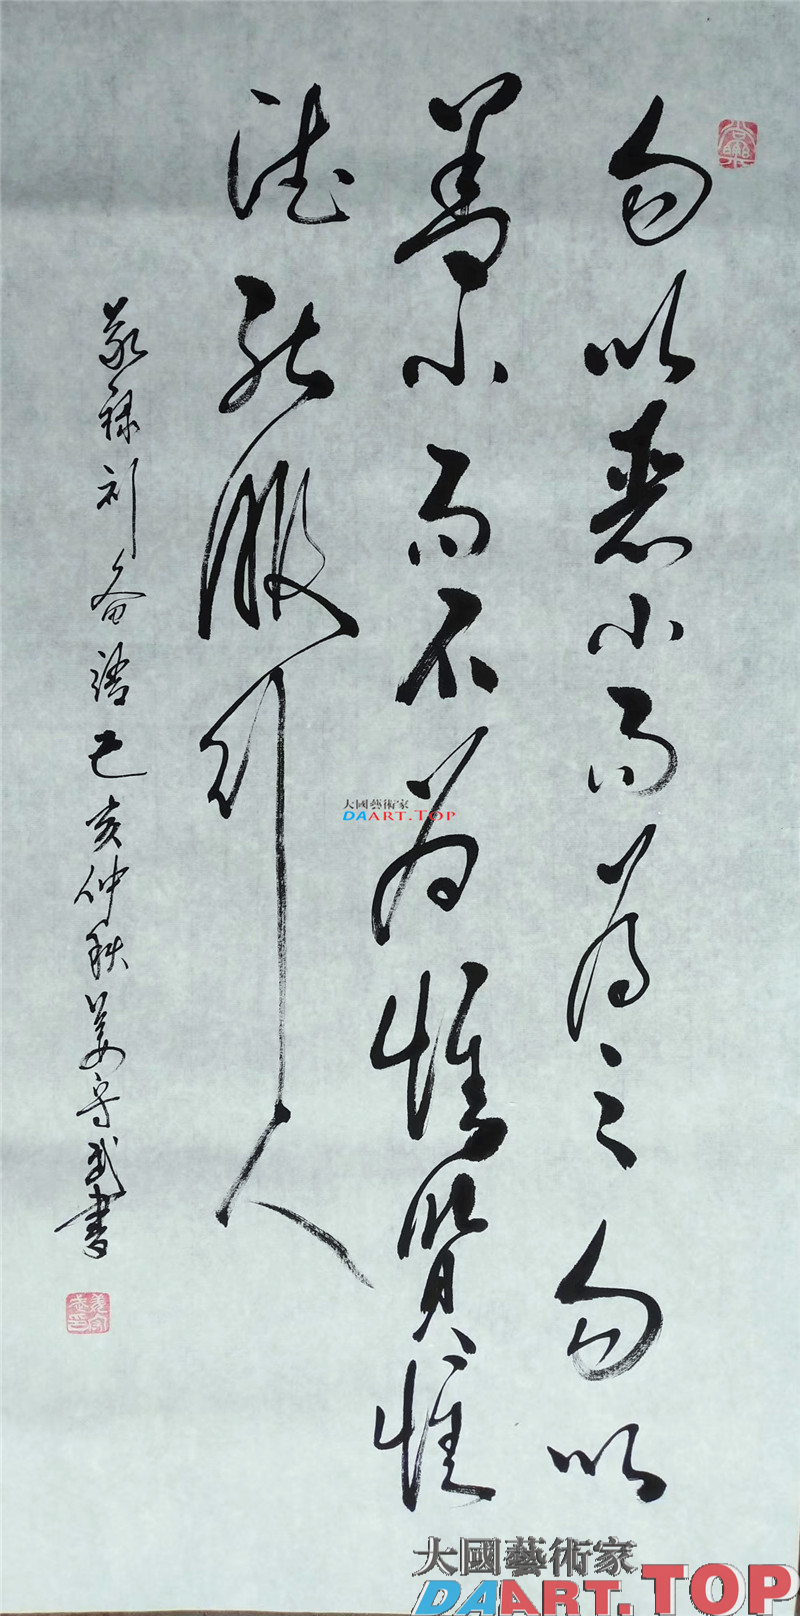 勿以惡小而為之勿以
善小而不为惟賢惟
德能服於人
敬録刘备語己亥仲秋姜守武書
姜守武印
大國藝術家
DAART.TOP
大國藝術家
DAART.TOP